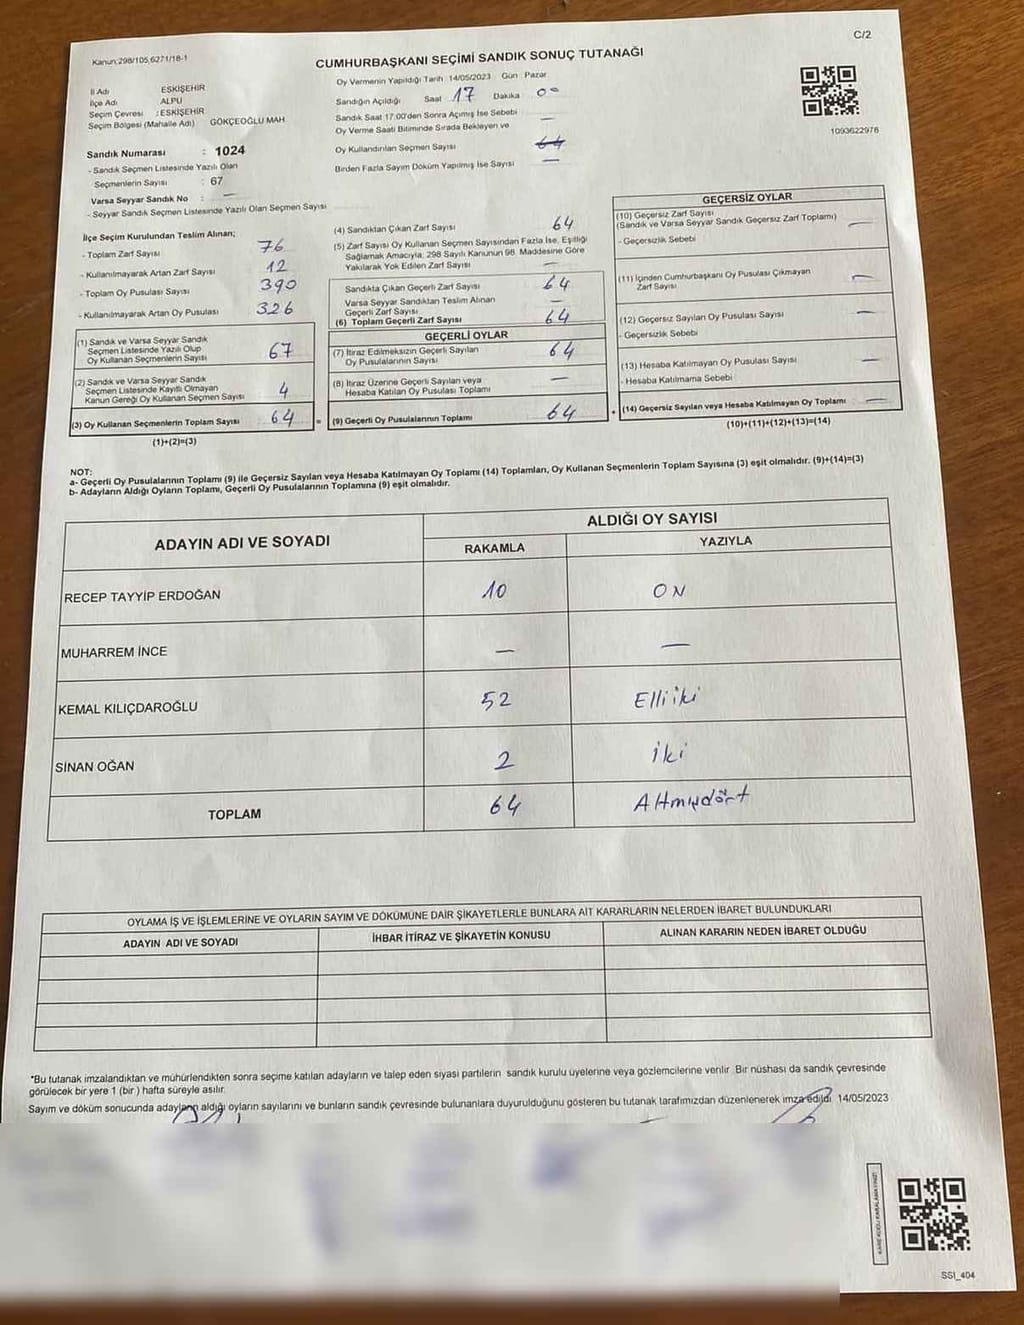 C/2
Kanun:298/105,6271/18-1
CUMHURBAŞKANI SEÇİMİ SANDIK SONUÇ TUTANAĞI
İl Adı ESKİŞEHİR
İlçe Adı ALPU
Seçim Çevresi : ESKİŞEHİR
Seçim Bölgesi (Mahalle Adı) GÖKÇEOĞLU MAH
Sandık Numarası : 1024
- Sandık Seçmen Listesinde Yazılı Olan
Seçmenlerin Sayısı : 67
Varsa Seyyar Sandık No : —
- Seyyar Sandık Seçmen Listesinde Yazılı Olan Seçmen Sayısı
Oy Vermenin Yapıldığı Tarih 14/05/2023 Gün Pazar
Sandığın Açıldığı Saat 17 Dakika 00
Sandık Saat 17.00'den Sonra Açılmış İse Sebebi —
Oy Verme Saati Bitiminde Sırada Bekleyen ve
Oy Kullandırılan Seçmen Sayısı 64
Birden Fazla Sayım Döküm Yapılmış İse Sayısı —
1093622978
İlçe Seçim Kurulundan Teslim Alınan;
- Toplam Zarf Sayısı 76
- Kullanılmayarak Artan Zarf Sayısı 12
- Toplam Oy Pusulası Sayısı 390
- Kullanılmayarak Artan Oy Pusulası 326
(1) Sandık ve Varsa Seyyar Sandık
Seçmen Listesinde Yazılı Olup
Oy Kullanan Seçmenlerin Sayısı 67
(2) Sandık ve Varsa Seyyar Sandık
Seçmen Listesinde Kayıtlı Olmayan
Kanun Gereği Oy Kullanan Seçmen Sayısı 4
(3) Oy Kullanan Seçmenlerin Toplam Sayısı 64
(1)+(2)=(3)
(4) Sandıktan Çıkan Zarf Sayısı 64
(5) Zarf Sayısı Oy Kullanan Seçmen Sayısından Fazla İse, Eşitliği
Sağlamak Amacıyla, 298 Sayılı Kanunun 98. Maddesine Göre
Yakılarak Yok Edilen Zarf Sayısı —
Sandıkta Çıkan Geçerli Zarf Sayısı 64
Varsa Seyyar Sandıktan Teslim Alınan
Geçerli Zarf Sayısı —
(6) Toplam Geçerli Zarf Sayısı 64
GEÇERLİ OYLAR
(7) İtiraz Edilmeksizin Geçerli Sayılan
Oy Pusulalarının Sayısı 64
(8) İtiraz Üzerine Geçerli Sayılan veya
Hesaba Katılan Oy Pusulası Toplamı —
= (9) Geçerli Oy Pusulalarının Toplamı 64
GEÇERSİZ OYLAR
(10) Geçersiz Zarf Sayısı
(Sandık ve Varsa Seyyar Sandık Geçersiz Zarf Toplamı) —
- Geçersizlik Sebebi
(11) İçinden Cumhurbaşkanı Oy Pusulası Çıkmayan
Zarf Sayısı —
(12) Geçersiz Sayılan Oy Pusulası Sayısı —
- Geçersizlik Sebebi
(13) Hesaba Katılmayan Oy Pusulası Sayısı —
- Hesaba Katılmama Sebebi
+ (14) Geçersiz Sayılan veya Hesaba Katılmayan Oy Toplamı —
(10)+(11)+(12)+(13)=(14)
NOT:
a- Geçerli Oy Pusulalarının Toplamı (9) ile Geçersiz Sayılan veya Hesaba Katılmayan Oy Toplamı (14) Toplamları, Oy Kullanan Seçmenlerin Toplam Sayısına (3) eşit olmalıdır. (9)+(14)=(3)
b- Adayların Aldığı Oyların Toplamı, Geçerli Oy Pusulalarının Toplamına (9) eşit olmalıdır.
ADAYIN ADI VE SOYADI ALDIĞI OY SAYISI
RAKAMLA YAZIYLA
RECEP TAYYİP ERDOĞAN 10 ON
MUHARREM İNCE — —
KEMAL KILIÇDAROĞLU 52 Elli iki
SİNAN OĞAN 2 iki
TOPLAM 64 Altmışdört
OYLAMA İŞ VE İŞLEMLERİNE VE OYLARIN SAYIM VE DÖKÜMÜNE DAİR ŞİKAYETLERLE BUNLARA AİT KARARLARIN NELERDEN İBARET BULUNDUKLARI
ADAYIN ADI VE SOYADI İHBAR İTİRAZ VE ŞİKAYETİN KONUSU ALINAN KARARIN NEDEN İBARET OLDUĞU
*Bu tutanak imzalandıktan ve mühürlendikten sonra seçime katılan adayların ve talep eden siyasi partilerin sandık kurulu üyelerine veya gözlemcilerine verilir. Bir nüshası da sandık çevresinde
görülecek bir yere 1 (bir) hafta süreyle asılır.
Sayım ve döküm sonucunda adayların aldığı oyların sayılarını ve bunların sandık çevresinde bulunanlara duyurulduğunu gösteren bu tutanak tarafımızdan düzenlenerek imza edildi. 14/05/2023
KARE KODU KARALAMAYINIZ!
SSI_404